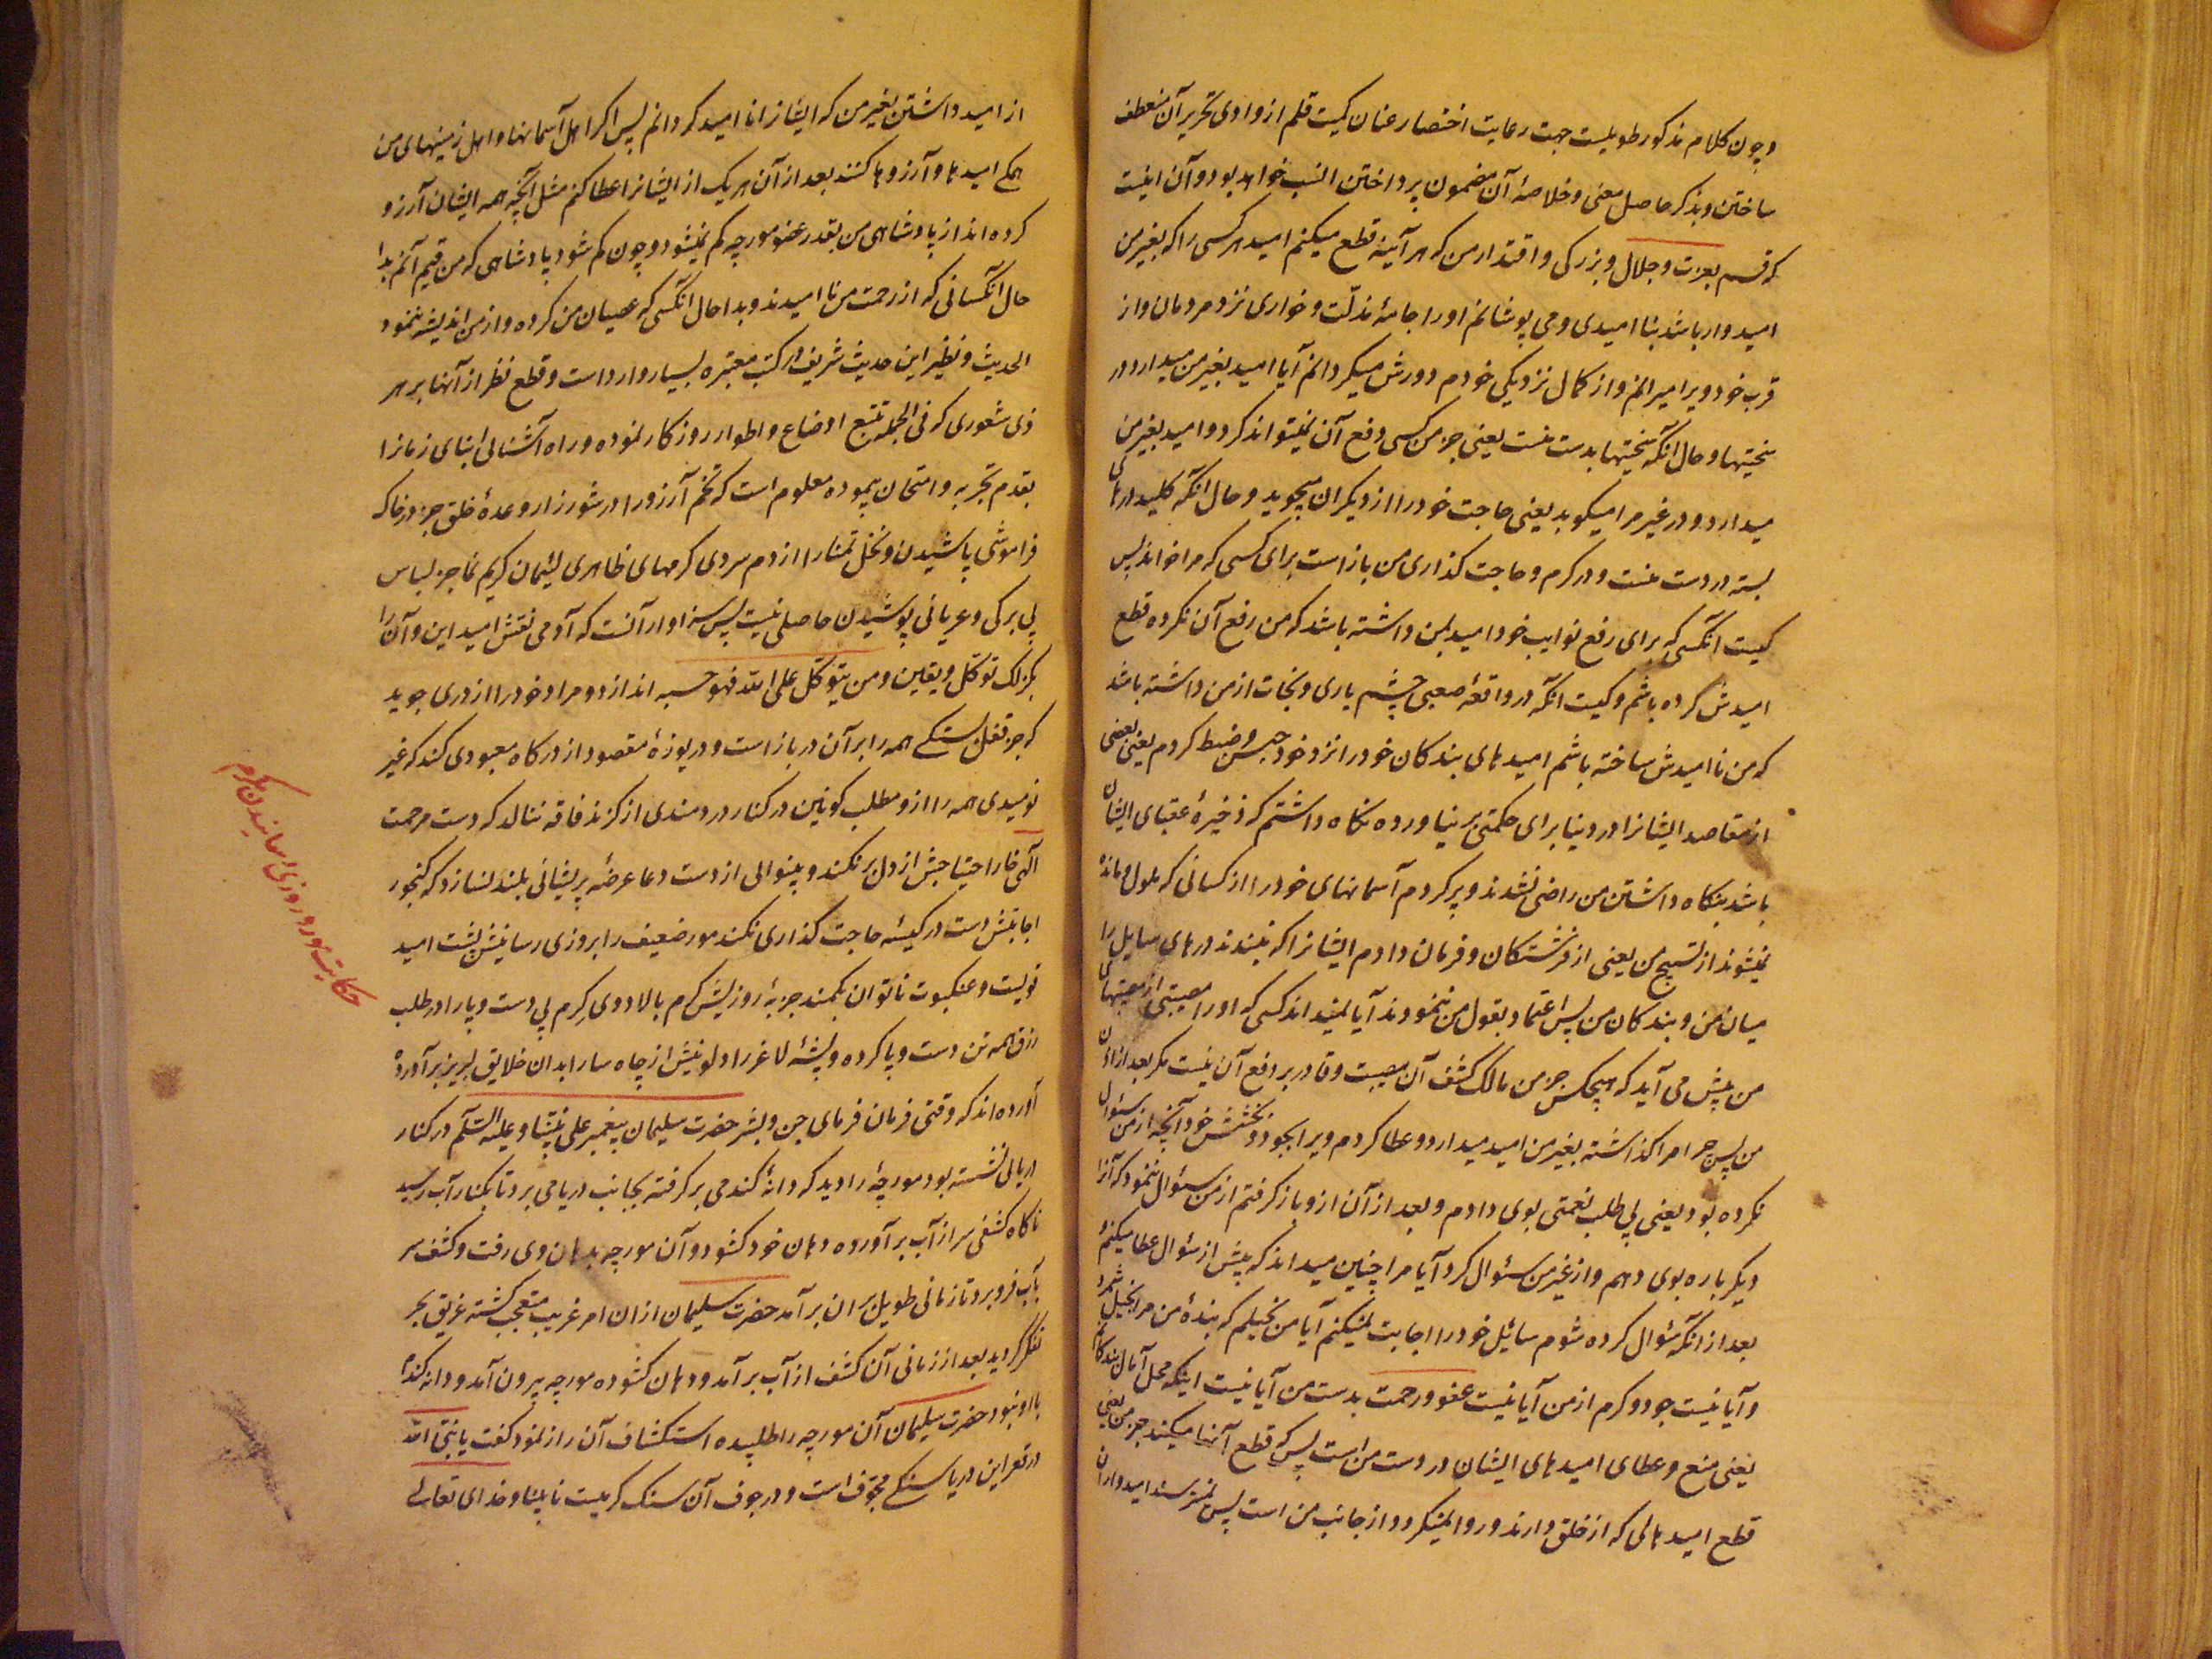 و چون کلام مذکور طویلست جهت رعایت اختصار عنان کمیت قلم از وادی تحریر آن منعطف
ساختن و بذکر حاصل معنی و خلاصهٔ آن مضمون پرداختن انسب خواهد بود و آن اینست
که قسم بعزت و جلال و بزرکی و اقتدار من که هر آینه قطع میکنم امید هر کسی را که بغیر من
امیدوار باشد بنا امیدی و می پوشانم او را جامهٔ مذلّت و خواری نزد مردمان و از
قرب خود ویرا میرانم و از کمال نزدیکی خودم دورش میکردانم آیا امید بغیر من میدارد در
سختیها و حال آنکه سختیها بدست منست یعنی جز من کسی دفع آن نمیتواند کرد و امید بغیر من
میدارد و در غیر مرا میکوبد یعنی حاجت خود را از دیکران میجوید و حال آنکه کلید درهای
بسته در دست منست و در کرم و حاجت کذاری من باز است برای کسی که مرا خواند پس
کیست آنکسی که برای رفع نوایب خود امید بمن داشته باشد که من رفع آن نکرده قطع
امیدش کرده باشم و کیست آنکه در واقعهٔ صعبی چشم یاری و نجات از من داشته باشد
که من نا امیدش ساخته باشم امیدهای بندکان خود را نزد خود حبس و ضبط کردم یعنی بعضی
از مقاصد ایشانرا در دنیا برای حکمتی بر نیاورده نکاه داشتم که ذخیرهٔ عقبای ایشان
باشد بنکاه داشتن من راضی نشدند و پر کردم آسمانهای خود را از کسانی که ملول و مانده
نمیشوند از تسبیح من یعنی از فرشتکان و فرمان دادم ایشانرا که نبندند درهای سایل را
میان من و بندکان من پس اعتماد بقول من ننمودند آیا نمیداند کسی که او را مصیبتی از مصیبتهای
من پیش می آید که هیچکس جز من مالک کشف آن مصیبت و قادر بر دفع آن نیست مکر بعد از اذن
من پس چرا مرا کذاشته بغیر من امید میدارد و عطا کردم ویرا بجود و بخشش خود آنچه از من سئوال
نکرده بود یعنی بی طلب نعمتی بوی دادم و بعد از آن از و باز کرفتم از من سئوال ننمود که آنرا
دیکر باره بوی دهم و از غیر من سئوال کرد آیا مرا چنین میداند که پیش از سئوال عطا میکنم و
بعد از آنکه سئوال کرده شوم سائل خود را اجابت نمیکنم آیا من بخیلم که بندهٔ من مرا بخیل شمرد
و آیا نیست جود و کرم از من آیا نیست عفو و رحمت بدست من آیا نیست اینکه محل آمال بندکانم
یعنی منع و عطای امیدهای ایشان در دست من است پس که قطع آنها میکند جز من یعنی
قطع امیدهائی که از خلق دارند و روا نمیکردد از جانب من است پس نمیترسند امیدواران
از امید داشتن بغیر من که ایشانرا نا امید کردانم پس اکر اهل آسمانها و اهل زمینهای من
همکی امیدها و آرزوها کنند بعد از آن هر یک از ایشانرا عطا کنم مثل آنچه همه ایشان آرزو
کرده اند از پادشاهی من بقدر عضو مورچه کم نمیشود و چون کم شود پادشاهی که من قیم آنم بدا
حال آنکسانی که از رحمت من نا امیدند و بدا حال آنکسی که عصیان من کرده و از من اندیشه ننمود
الحدیث و نظیر این حدیث شریف در کتب معتبره بسیار وارد است و قطع نظر از آنها بر هر
ذی شعوری که فی الجمله تتبع اوضاع و اطوار روزکار نموده و راه آشنائی ابنای زمانرا
بقدم تجربه و امتحان پیموده معلوم است که تخم آرزو را در شوره زار وعدهٔ خلق جز در خاک
فراموشی پاشیدن و نخل تمنا را از دم سردی کرمهای ظاهری لئیمان کریم نما جز لباس
بی برکی و عریانی پوشیدن حاصلی نیست پس سزاوار آنست که آدمی نقش امید این و آن را
بکزلک توکّل و یقین و من یتوکّل علی الله فهو حسبه اندازد و مراد خود را از دری جوید
که جز قفل سنکی همه را بر آن در باز است و دریوزهٔ مقصود از درکاه معبودی کند که غیر
نومیدی همه را از و مطلب کونین در کنار دردمندی از کزند فاقه ننالد که دست مرحمت
آلهی خار احتیاجش از دل بر نکند و بینوائی از دست دعا عرضهٔ پریشانی بلند نسازد که کنجور
اجابتش دست در کیسهٔ حاجت کذاری نکند مور ضعیف را بروزی رسانیش پشت امید
قویست و عنکبوت ناتوان بکمند جزبهٔ روزیش کرم بالا دوی کرم بی دست و پا را در طلب
رزق همه تن دست و پا کرده و پشهٔ لاغر را دلو نیش از چاه سار ابدان خلایق لبریز بر آورده
آورده اند که وقتی فرمان فرمای جن و بشر حضرت سلیمان پیغمبر علی نبینا و علیه السّلم در کنار
دریائی نشسته بود مورچهٔ را دید که دانهٔ کندمی بر کرفته بجانب دریا می برد تا بکنار آب رسید
ناکاه کشفی سر از آب بر آورده دهان خود کشود و آن مورچه بدهان وی رفت و کشف سر
بآب فرو برد تا زمانی طویل بر آن بر آمد حضرت سلیمان از ان امر غریب متعجب کشته غریق بحر
تفکر کردید بعد از زمانی آن کشف از آب بر آمد و دهان کشوده مورچه بیرون آمد و دانه کندم
با او نبود حضرت سلیمان آن مورچه را طلبیده استکشاف آن راز نمود کفت یا نبی الله
در قعر این دریا سنکی مجوّف است و در جوف آن سنک کرمیست نابینا و خدای تعالی
حکایت مور و روزی رسانیدن بکرم